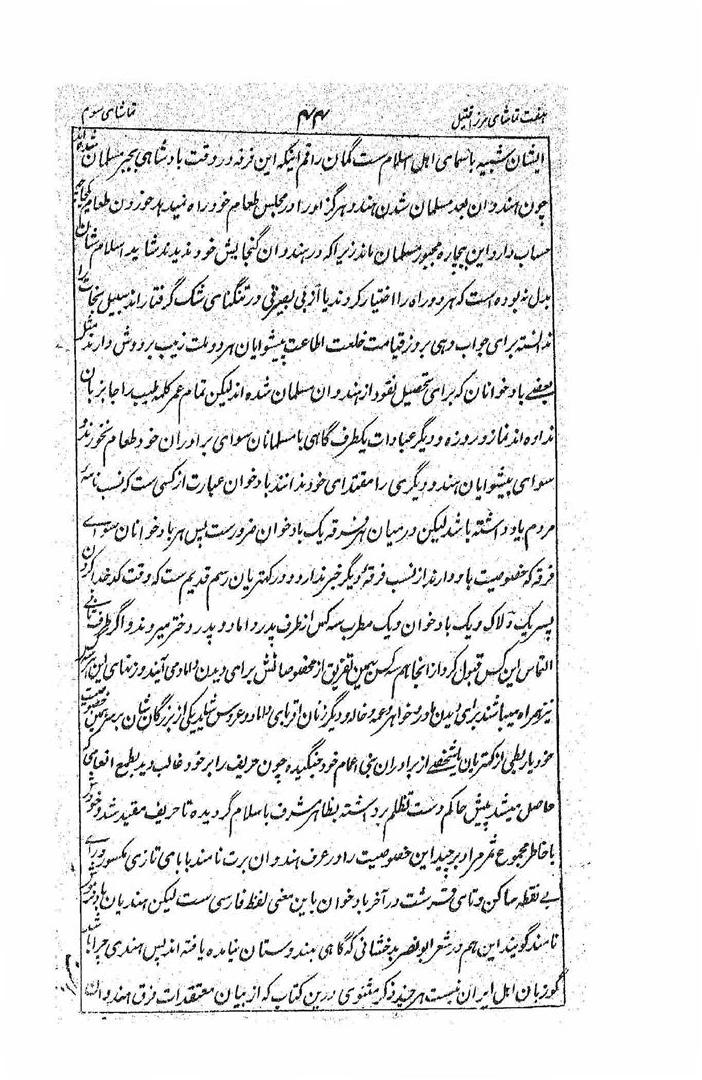 هفت تماشای مرزا قتیل ۴۴ تماشای سوم
ایشان شبیه باسمای اهل اسلام ست گمان راقم اینکه این فرقه در وقت بادشاهی بجبر مسلمان شده اند
چون هندوان بعد مسلمان شدن هندو هرگز او را در مجلس طعام خود راه نمیدهد خوردن طعام یکجا چه
حساب دارد این بیچاره مجبور مسلمان ماند زیرا که در هندوان گنجایش خود ندیدند شاید اسلام شان
بدل نه بوده است که هر دو راه را اختیار کردند یا از بی بصیرتی در تنگنای شک گرفتار اند سبیل نجات را
ندانسته برای جواب دهی بروز قیامت خلعت اطاعت پیشوایان هر دو ملت زیب بر و دوش دارند مثل
بعضے بادخوانان که برای تحصیل نقود از هندوان مسلمان شده اند لیکن تمام عمر کلمه طیب را جا بزبان
نداده اند نماز و روزه و دیگر عبادات یکطرف گاهی با مسلمانان سوای برادران خود طعام نخورند و
سوای پیشوایان هندو دیگری را مقتدای خود ندانند بادخوان عبارت از کسی ست که نسب نامهٔ
مردم یاد داشته باشد لیکن در میان هر فرقه یک بادخوان ضرورست پس هر بادخوانان سوای
فرقه که خصوصیت با او دارند از نسب فرقهٔ دیگر خبر ندارد و در کهتریان رسم قدیم ست که وقت کدخدا کردن
پسر یک دلاک و یک بادخوان و یک مطرب سه کس از طرف پدر داماد و پدر دختر میروند و اگر طرف ثانی
التماس این کس قبول کرد از انجا هم سه کس بهمین تفریق از مخصوصانش برای دیدن داماد می آیند و زنهای این هر سه
نیز همراه میباشند برای دیدن مادر و خواهر و عمه و خاله و دیگر زنان اقربای داماد و عروس شاید یکی از بزرگان شان بر همین خصوصیت
خود یا ربطی از کهتریان یا شخصے از برادران بنی اعمام خود جنگیده چون حریف را بر خود غالب دید بطمع انعامی که
حاصل میشد پیش حاکم دست تظلم برداشته بظاهر مشرف باسلام گردیده تا حریف مقید شد و خودش
با خاطر مجموع ثمر مراد بر چید این خصوصیت را در عرف هندوان برت نامند با بای تازی مکسور و رای
بے نقطه ساکن و تای قرشت در آخر بادخوان باین معنی لفظ فارسی ست لیکن هندیان
نامند گویند این هم در شعر ابو نصر بدخشانی که گاهی بهندوستان نیامده یافته اند پس هندی چرا باشد
گو زبان اهل ایران نیست هر چند ذکر مثنوی درین کتاب که از بیان معتقدات فرق هندوان